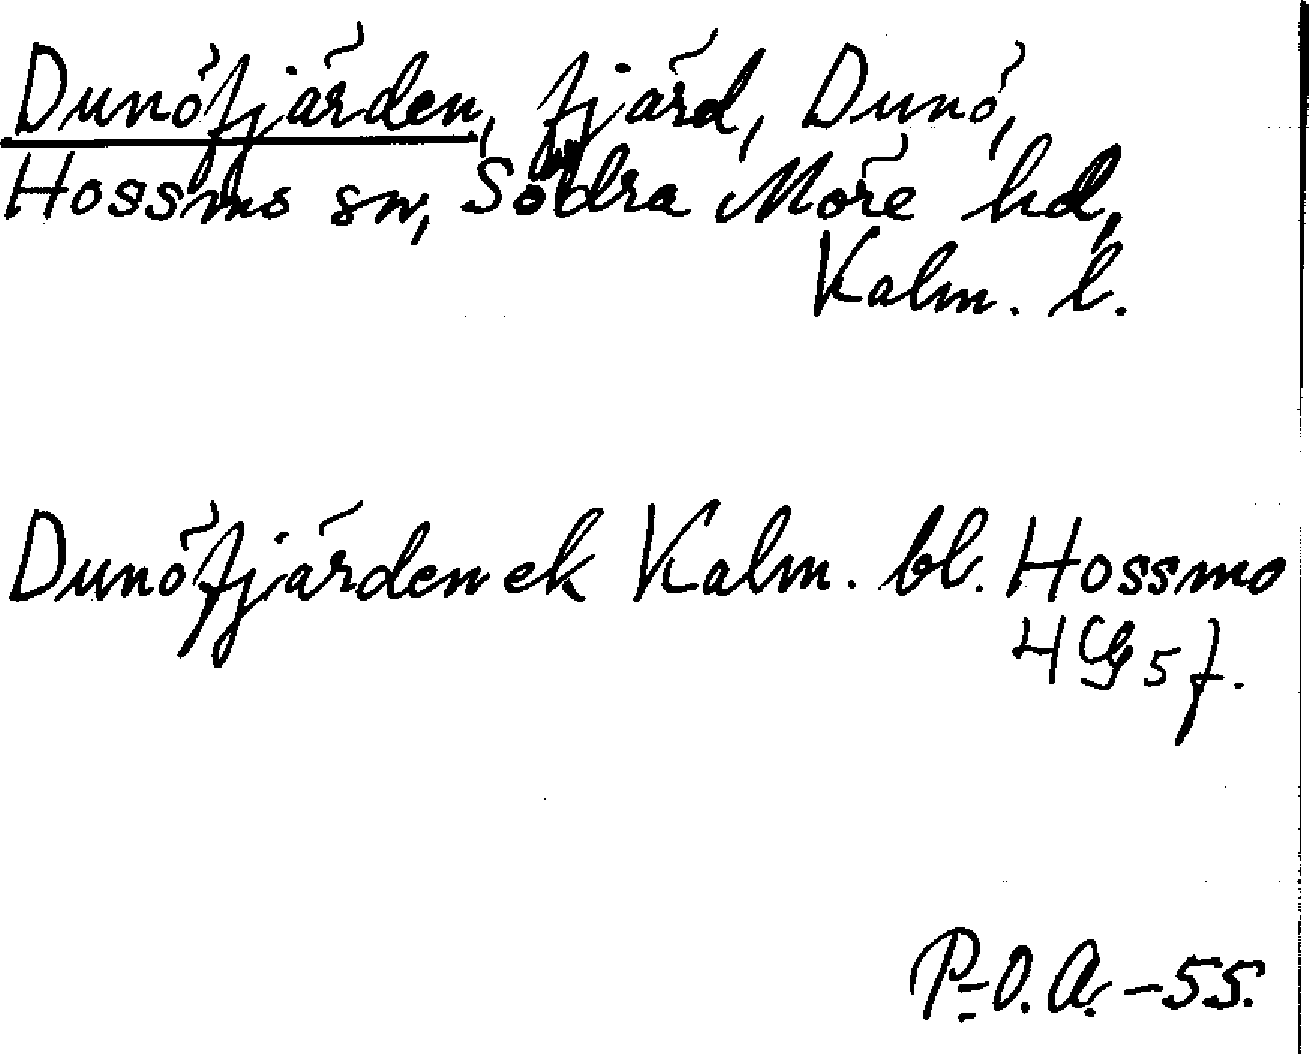 Dunöfjärden, fjärd, Dunö,
Hossmo sn, Södra Möre hd,
Kalm. l.
Dunöfjärden ek Kalm. bl. Hossmo
4G 5f.
P-O.A.-55.